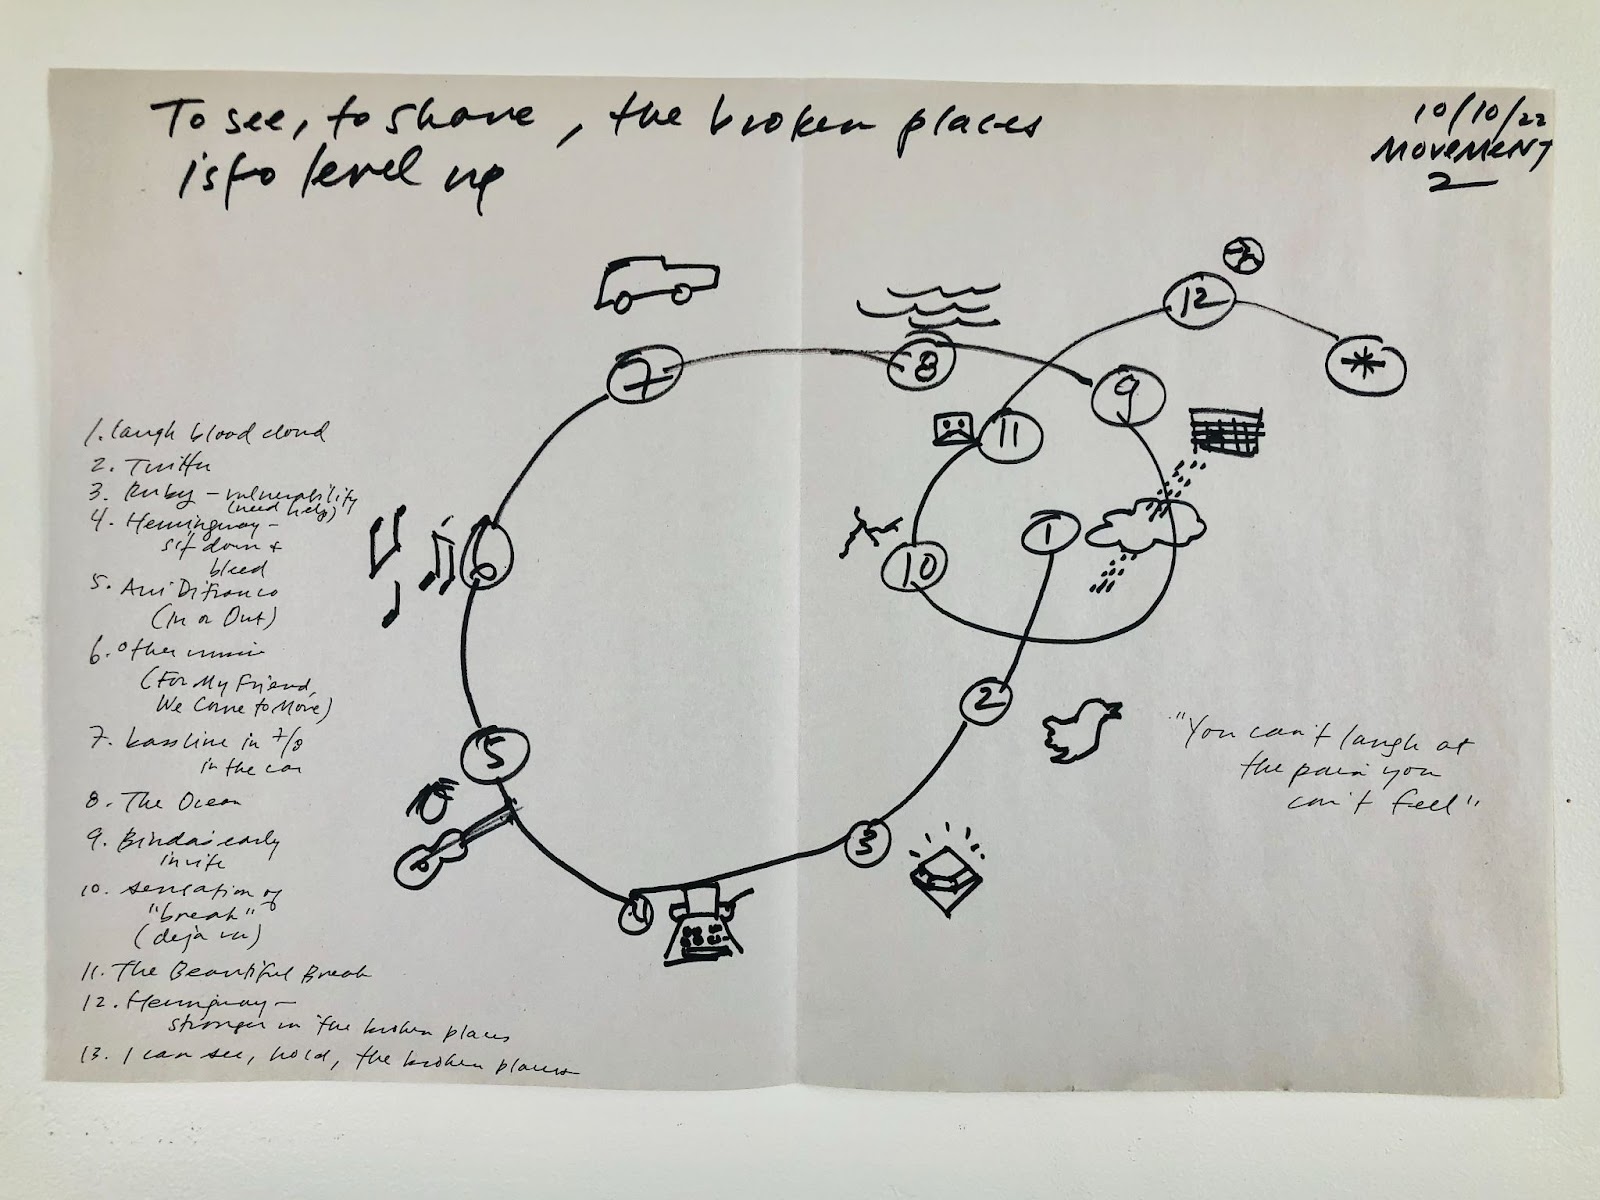 To see, to share, the broken places
is to level up
10/10/22
MOVEMENT
2
7
8
9
10
11
12
*
1
2
3
4
5
6
1. laugh blood cloud
2. Twitter
3. Ruby - vulnerability
(need help)
4. Hemingway -
sit down +
bleed
5. Ani DiFranco
(In or Out)
6. Other music
(For My Friend,
We Come to Move)
7. bassline in 7/8
in the car
8. The Ocean
9. Binda's early
invite
10. sensation of
"break"
(deja vu)
11. The Beautiful Break
12. Hemingway -
stronger in the broken places
13. I can see, hold, the broken places
"You can't laugh at
the pain you
can't feel"